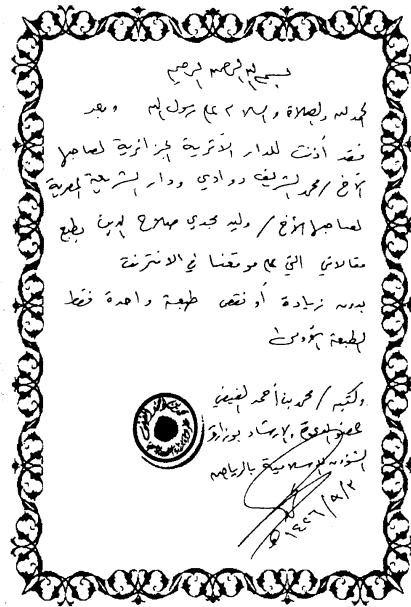 بسم الله الرحمن الرحيم
الحمد لله والصلاة والسلام على رسول الله وبعد
فقد أذنت للدار الأثرية الجزائرية لصاحبها
الأخ / محمد الشريف دوادي ودار الشريعة المصرية
لصاحبها الأخ / وليد مجدي صلاح الدين بطبع
مقالاتي التي على موقعنا في الانترنت
بدون زيادة أو نقص طبعة واحدة فقط
الطبعة الأولى
وكتبه / محمد بن أحمد الفيفي
عضو الدعوة والارشاد بوزارة
الشؤون الإسلامية بالرياض
١٤٢٦/٩/٣ هـ